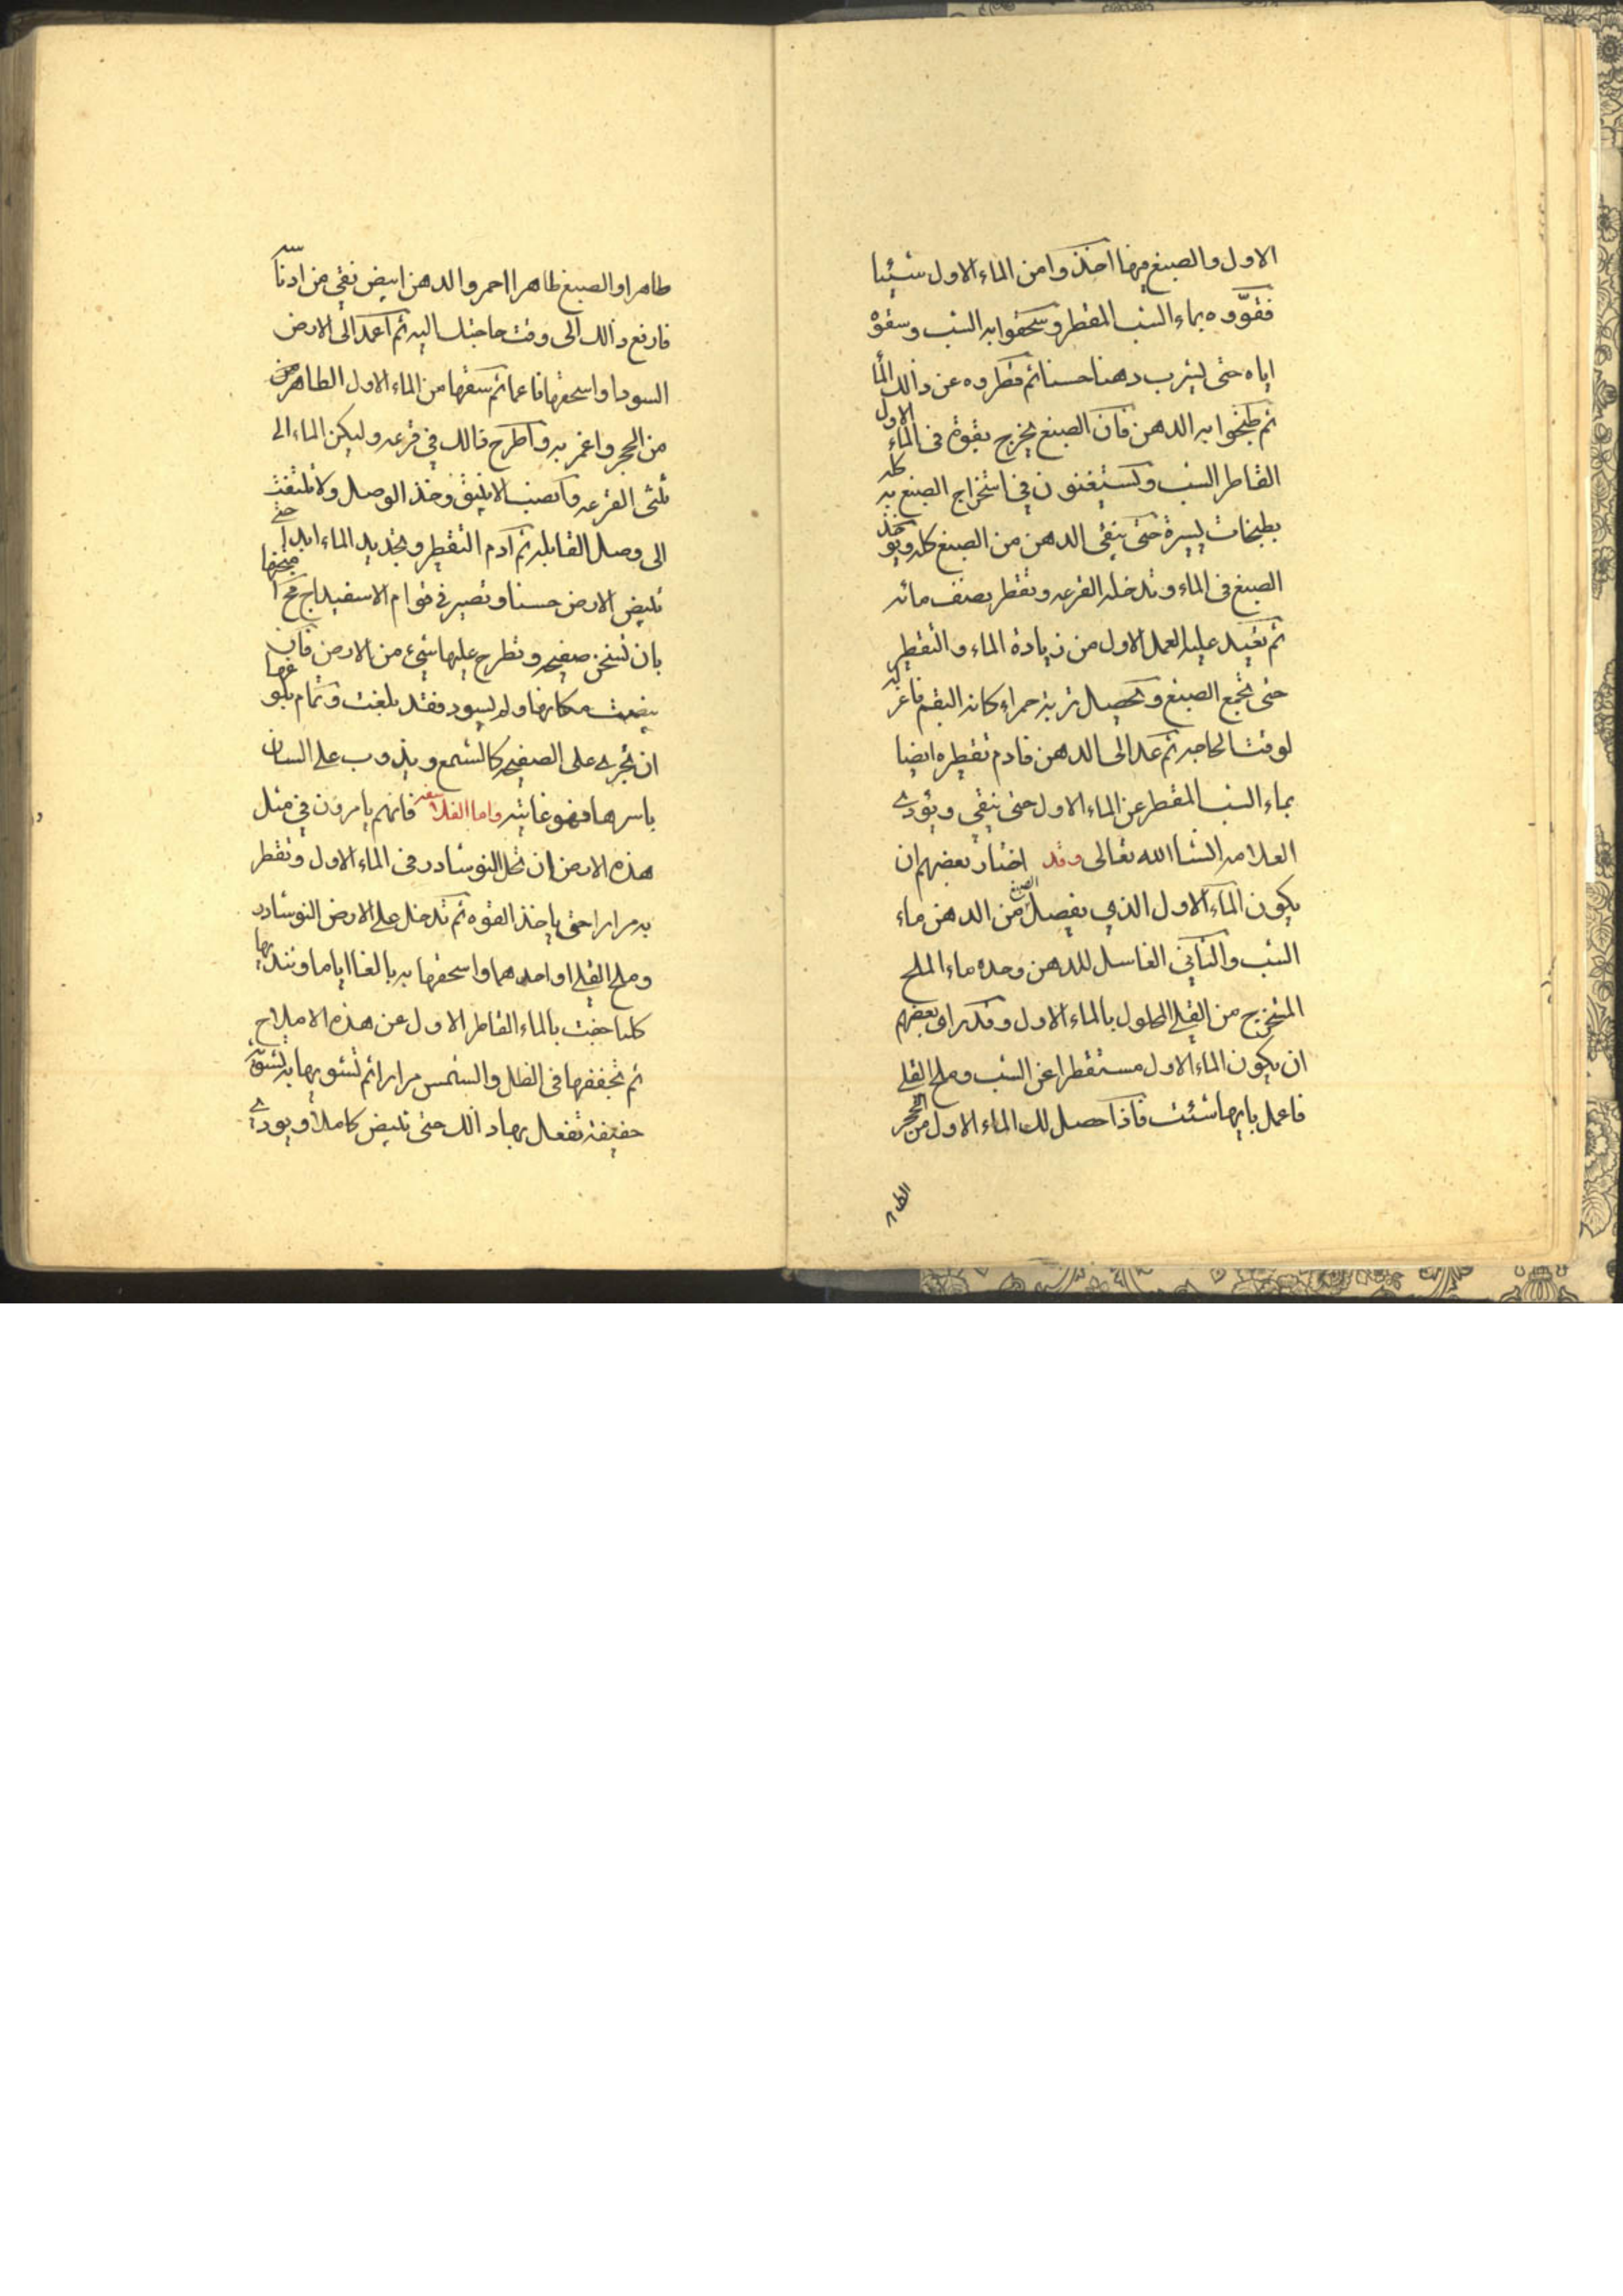 الاول والصبغ فيها اخذوا من الماء الاول شيئا
فقوّوه بماء الشب المقطر وسحقوا به الشب وسقوه
اياه حتى ليشرب دهنا حسنا ثم قطروه عن ذالك الما
ثم طبخوا به الدهن فان الصبغ يخرج بقوة فى الماء الاول
القاطر الشب وكستيغنون في استخراج الصبغ به كله
بطبخات يسيرة حتى ينقى الدهن من الصبغ كله ويوخذ
الصبغ فى الماء وتدخله القرعه وتقطر نصف مائه
ثم تعيد عليه العمل الاول من زيادة الماء والتقطير
حتى تجمع الصبغ وتحصل تربة حمراء كانه البقم فاعزله
لوقت الحاجه ثم عد الى الدهن فادم تقطيره ايضا
بماء الشب المقطر عن الماء الاول حتى ينقى ويؤدي
العلامه انشا الله تعالى وقد اختار بعضهم ان
يكون الماء الاول الذي يفصل الصبغ من الدهن ماء
الشب والثاني الغاسل للدهن وحده ماء الملح
المتخرج من القلي المحلول بالماء الاول وقد راى بعضهم
ان يكون الماء الاول مستقطرا عن الشب وملح القلي
فاعمل بايهما شئت فاذا حصل لك الماء الاول من الحجر
طاهرا والصبغ طاهرا احمر والدهن ابيض نقي من ادناسه
فارفع ذالك الى وقت حاجتك اليه ثم اعمد الى الارض
السودا واسحقها ناعما ثم سقها من الماء الاول الطاهر من
من الحجر واغمر به واطرح ذالك في قرعه وليكن الماء الى
ثلثى القرعه وانصب الانبيق وخذ الوصل ولا تلتفت
الى وصل القابله ثم ادم التقطير وتجديد الماء ابدا حتى
تبيض الارض حسنا وتصير في قوام الاسفيداج فح امتحنها
بان تسخن صفيحه وتطرح عليها شيء من الارض فان
بيضت مكانها ولم يسود فقد بلغت وتمام بلوغها
ان تجرى على الصفيحه كالشمع ويذوب على السان
باسرها فهو غايته واما الفلاسفه فانهم يامرون في مثل
هذه الارض ان تحل النوشادر فى الماء الاول وتقطر
به مرارا حتى ياخذ القوه ثم تدخل على الارض النوشادر
وملح القلي او احدهما واسحقها به بالغا اياما ونديها
كلما جفت بالماء القاطر الاول عن هذه الاملاح
ثم تجففها فى الظل والشمس مرارا ثم تشويها به تشويه
خفيفه تفعل بها ذالك حتى تبيض كاملا ويودي